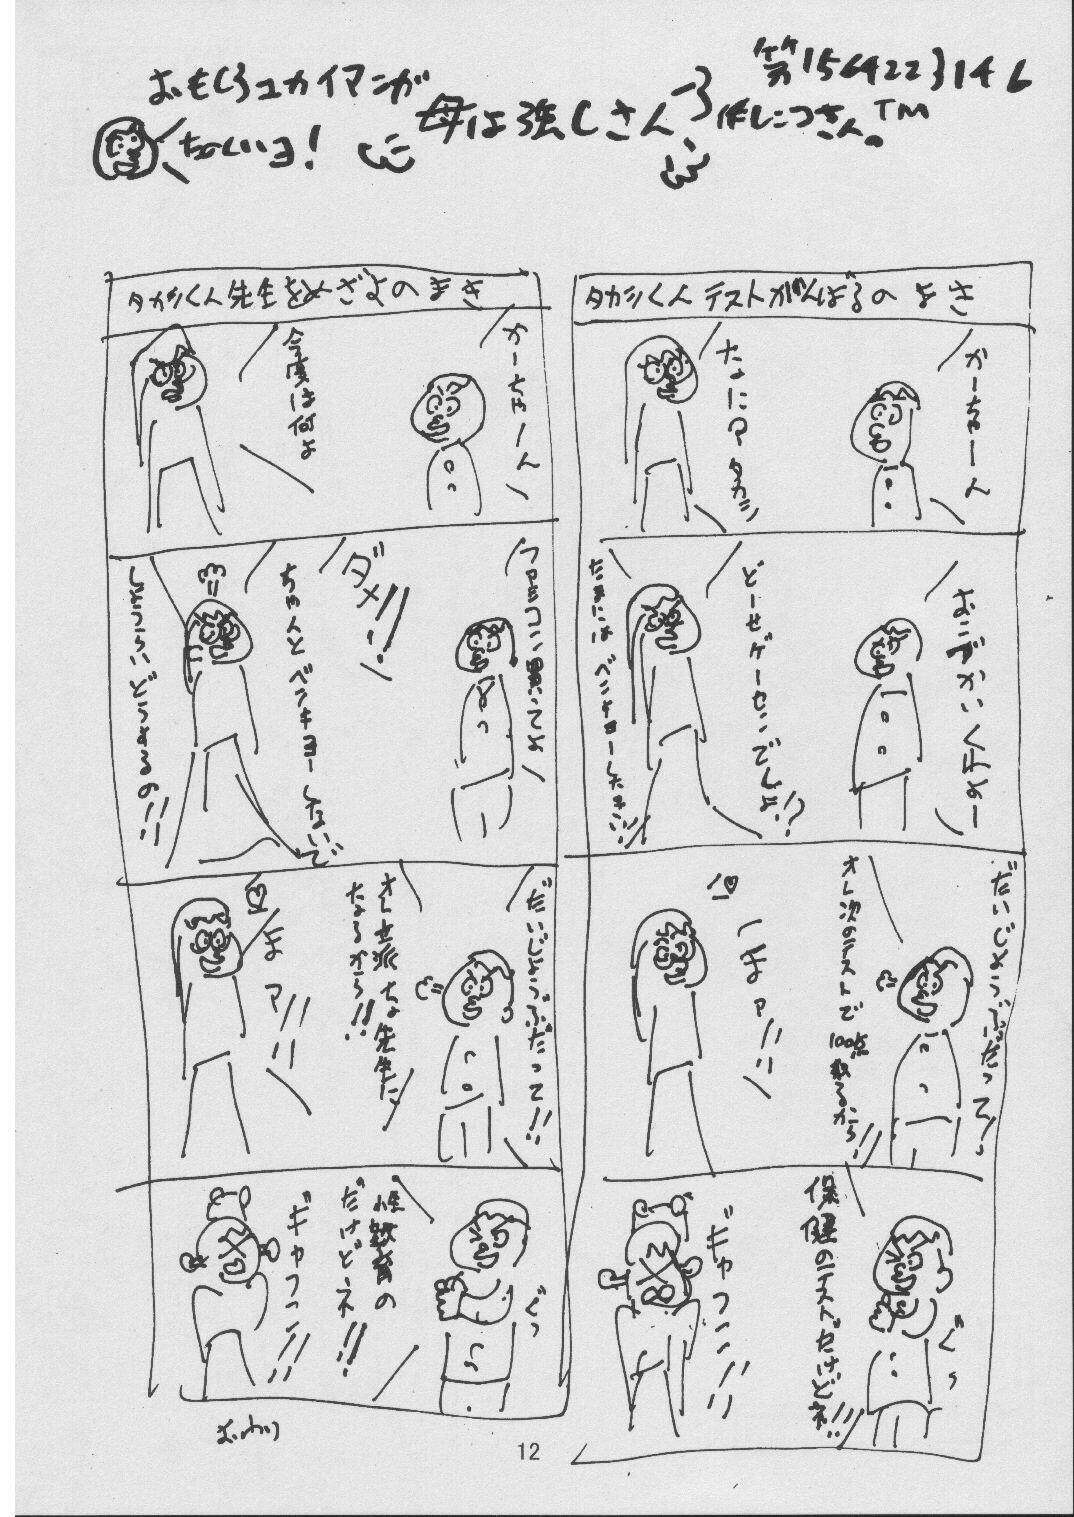 おもしろユカイマンガ
ちーくいヨ!
母は強しさん
第156422３146
作しにつさん。TM
タカシくんテストがんばるの まき
かーちゃーん
なにヨー タカシ
おこづかいくれよー
どーせゲーセンでしょ!?
たまにはベンキョーしたまえ!!
だいじょうぶだって!
オレ次のテストで
100点取るから!!
まァ!!
保健のテストだけどネ!!
ぐっ
ギャフン!!
タカシくん先生をめざすの まき
かーちゃーん
今度は何よ
こづかい
ダメ!!
ちゃんとベンキョーしないで
しょうらいどうすんの!!
だいじょうぶだって!!
オレ立派な先生に
なるから!!
まァ!!
性教育の
だけどネ!!
ぐっ
ギャフン!!
おわり
12